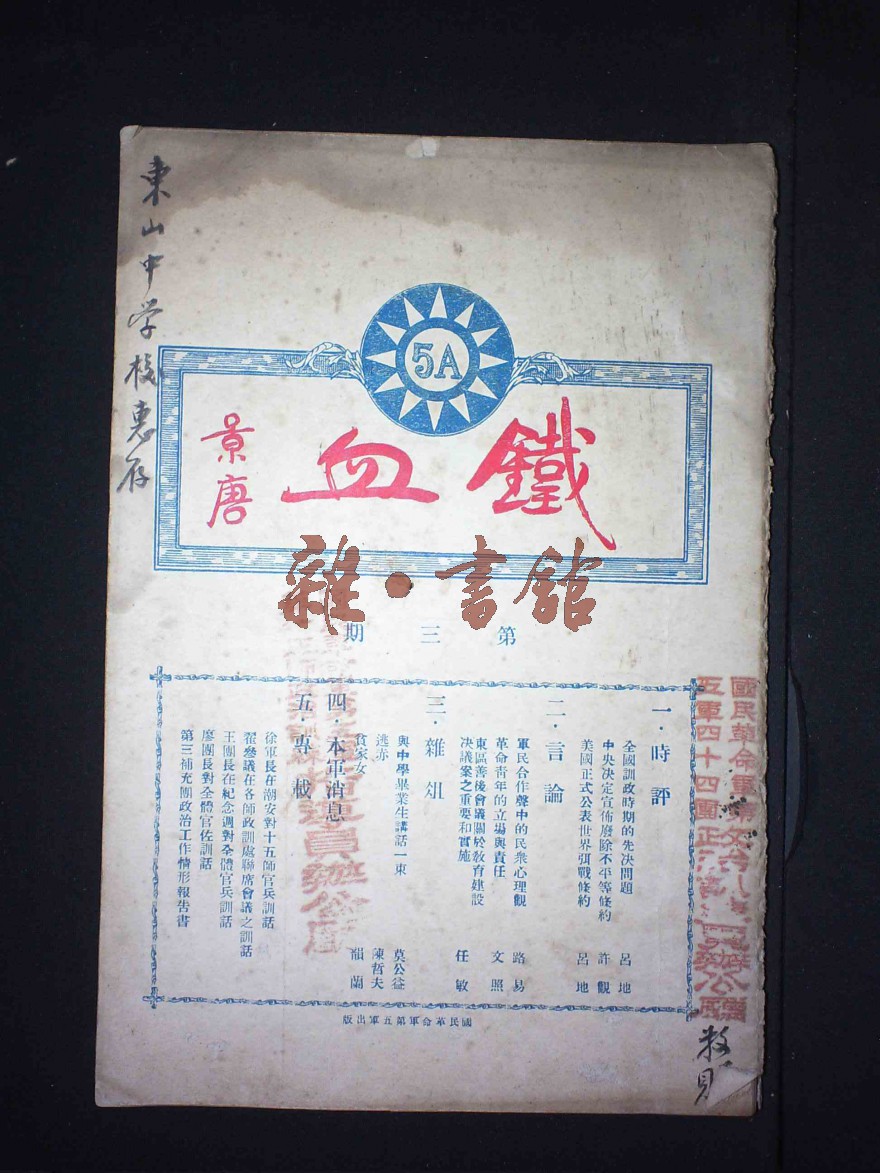 東山中学校惠存
5A
鐵血
景唐
雜·書館
第三期
一·時評
全國訓政時期的先決問題 呂地
中央決定宣佈廢除不平等條約 許觀
美國正式公表世界弭戰條約 呂地
二·言論
軍民合作聲中的民衆心理觀 路易
革命青年的立場與責任 文照
東區善後會議關於教育建設決議案之重要和實施 任敏
三·雜俎
與中學畢業生講話一束 莫公益
逃赤 陳哲夫
貧家女 韻蘭
四·本軍消息
五·專載
徐軍長在潮安對十五師官兵訓話
翟參議在各師政訓處聯席會議之訓話
王團長在紀念週對全體官兵訓話
廖團長對全體官佐訓話
第三補充團政治工作情形報告書
國民革命軍第五軍出版
國民革命軍第
五軍四十四團正
辦公廳
員辦公廳
敎